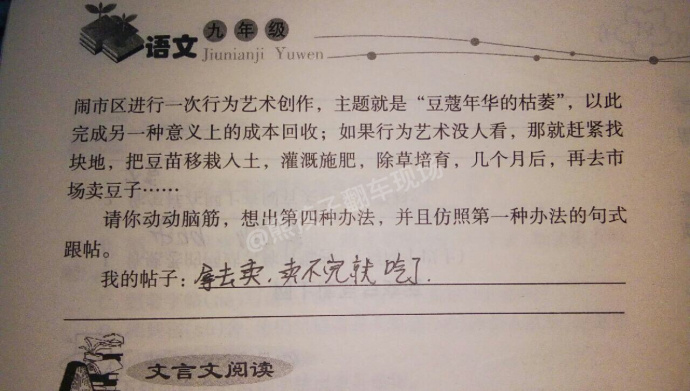 九年级
语文 Jiunianji Yuwen
闹市区进行一次行为艺术创作，主题就是“豆蔻年华的枯萎”，以此
完成另一种意义上的成本回收；如果行为艺术没人看，那就赶紧找
块地，把豆苗移栽入土，灌溉施肥，除草培育，几个月后，再去市
场卖豆子……
请你动动脑筋，想出第四种办法，并且仿照第一种办法的句式
跟帖。
我的帖子：拿去卖，卖不完就吃了.
文言文阅读